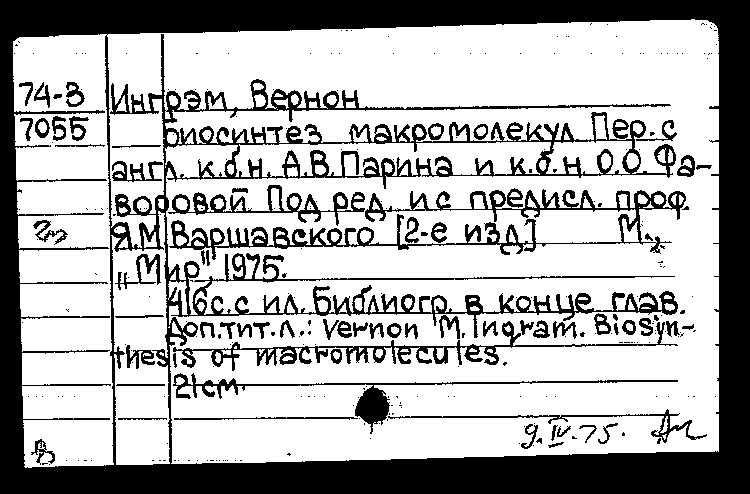 74-3 Ингрэм, Вернон
7055 Биосинтез макромолекул Пер. с
англ. к.б.н. А.В.Парина и к.б.н. О.О.Фа-
воровой. Под ред. и с предисл. проф.
Я.М.Варшавского [2-е изд.]. М.,
„Мир", 1975.
416с. с ил. Библиогр. в конце глав.
Доп.тит.л.: Vernon M. Ingram. Biosyn-
thesis of macromolecules.
21см.
9.IV.75.